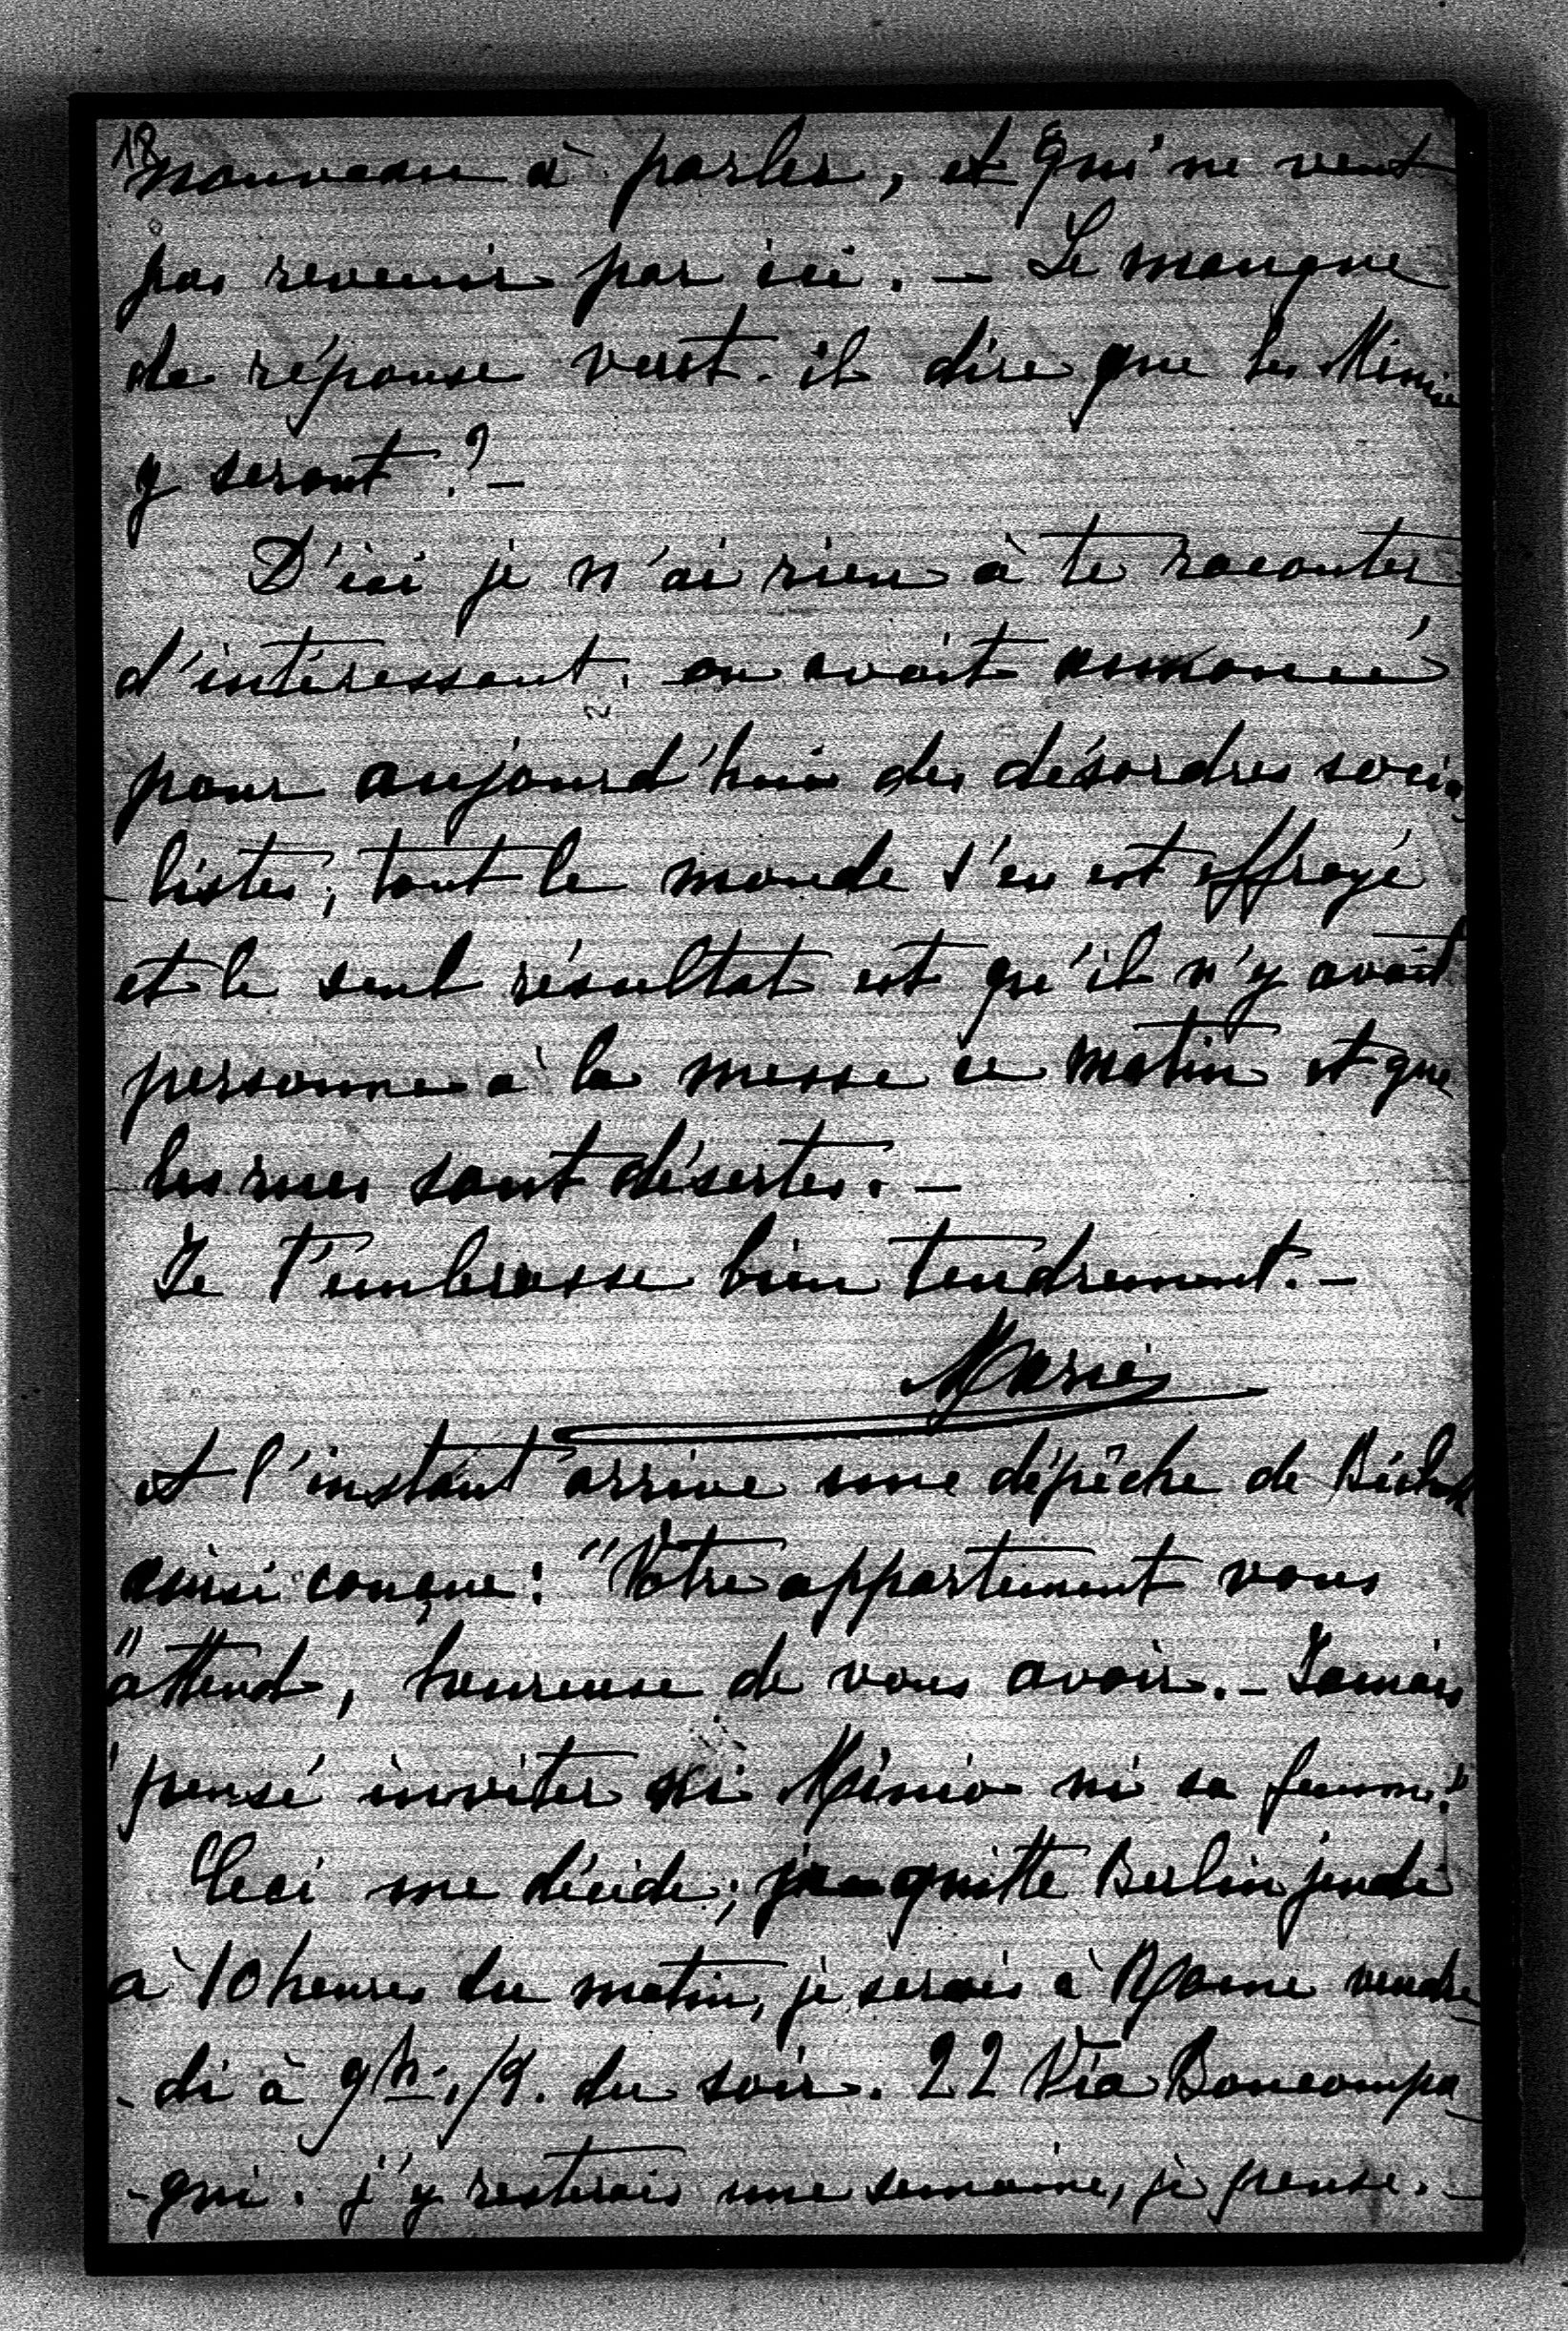 18
nouveau à parler, et qui ne veut
pas revenir par ici. — Le manque
de réponse veut-il dire que les Minio
y seront? —
D'ici je n'ai rien à te raconter
d'intéressant; on avait annoncé
pour aujourd'hui des désordres socia
-listes; tout le monde s'en est effrayé
et le seul résultat est qu'il n'y avait
personne à la messe ce matin et que
les rues sont désertes. —
Je t'embrasse bien tendrement. —
Marie
et l'instant arrive une dépêche de
ainsi conçue: "Votre appartement vous
"attend, heureuse de vous avoir. — Jamais
"pensé inviter ni Minio ni sa femme."
Ceci me décide; je quitte Berlin jeudi
à 10 heures du matin, je serais à Rome vendre
-di à 9h. du soir. 22 Via Boncompa
-gni. j'y resterais une semaine, je pense. —